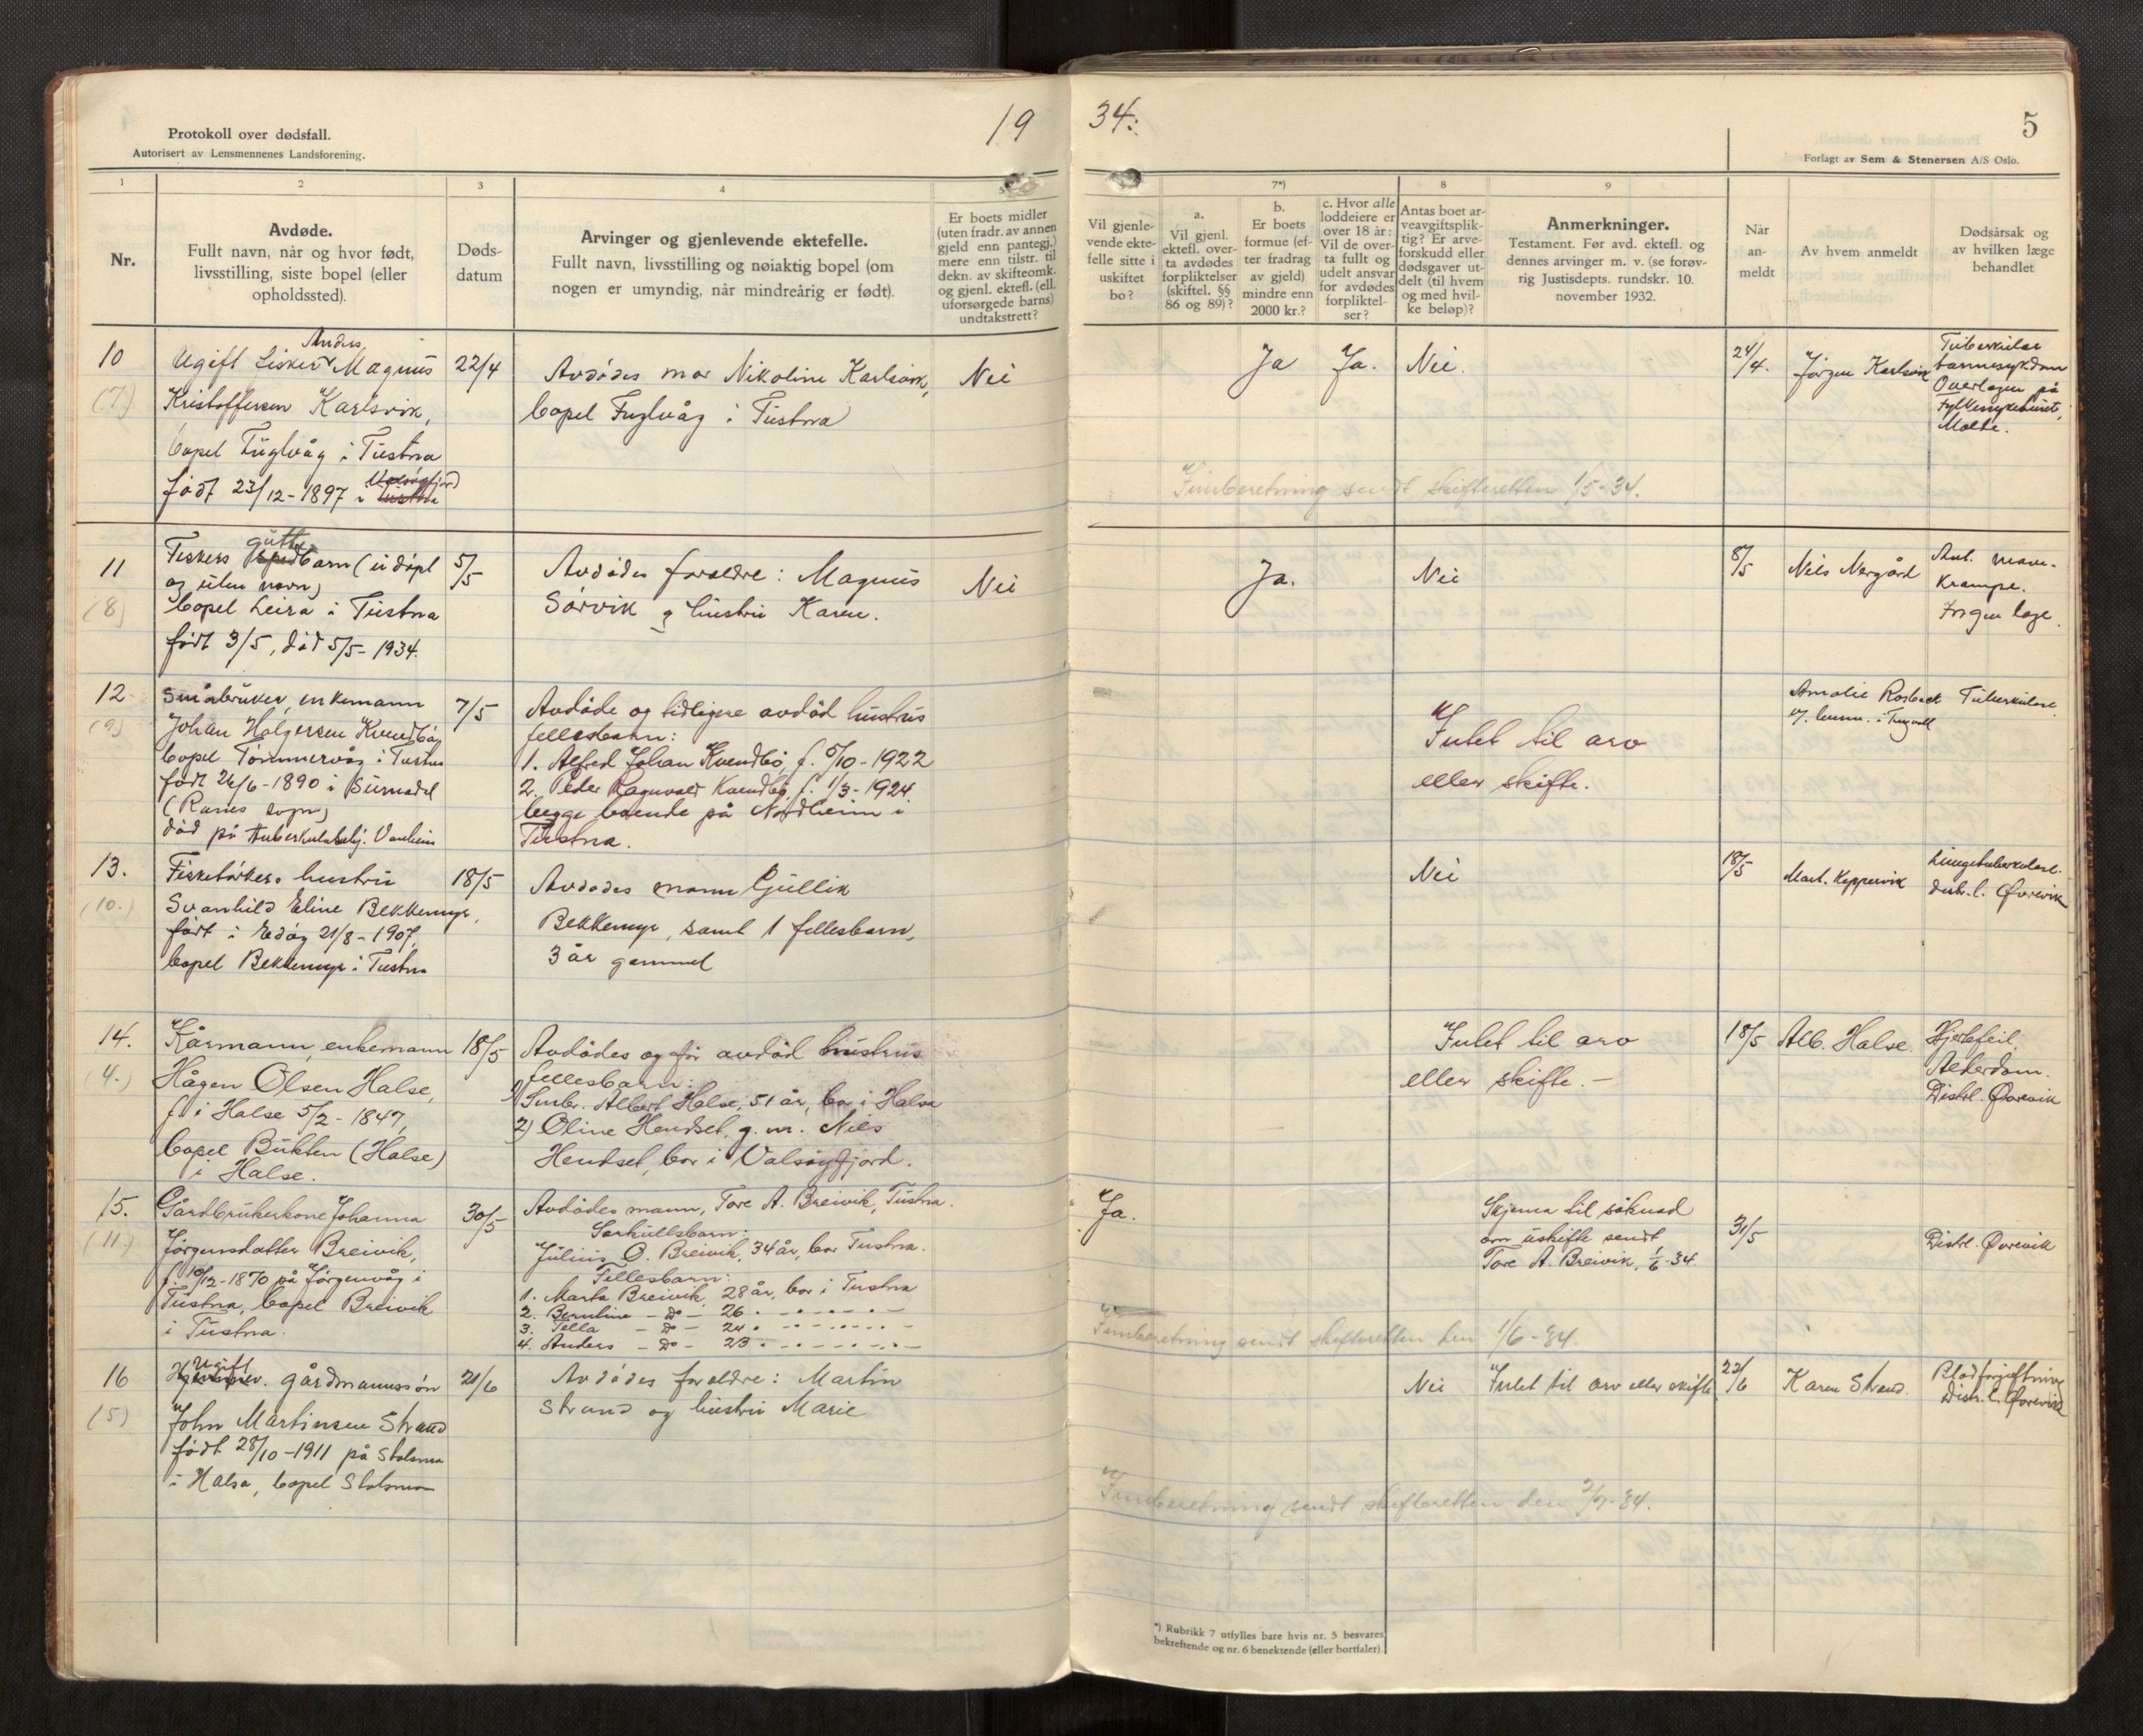 Protokoll over dødsfall.
Autorisert av Lensmennenes Landsforening.
19
34.
5
Forlagt av Sem & Stenersen A/S Oslo.
1
2
3
4
5
7*)
8
9
Nr.
Avdøde.
Fullt navn, når og hvor født,
livsstilling, siste bopel (eller
opholdssted).
Døds-
datum
Arvinger og gjenlevende ektefelle.
Fullt navn, livsstilling og nøiaktig bopel (om
nogen er umyndig, når mindreårig er født).
Er boets midler
(uten fradr. av annen
gjeld enn pantegj.)
mere enn tilstr. til
dekn. av skifteomk.
og gjenl. ektefl. (ell.
uforsørgede barns)
undtakstrett?
Vil gjenle-
vende ekte-
felle sitte i
uskiftet
bo?
a.
Vil gjenl.
ektefl. over-
ta avdødes
forpliktelser
(skiftel. §§
86 og 89)?
b.
Er boets
formue (ef-
ter fradrag
av gjeld)
mindre enn
2000 kr.?
c. Hvor alle
loddeiere er
over 18 år:
Vil de over-
ta fullt og
udelt ansvar
for avdødes
forpliktel-
ser?
Antas boet ar-
veavgiftsplik-
tig? Er arve-
forskudd eller
dødsgaver ut-
delt (til hvem
og med hvil-
ke beløp)?
Anmerkninger.
Testament. Før avd. ektefl. og
dennes arvinger m. v. (se forøv-
rig Justisdepts. rundskr. 10.
november 1932.
Når
an-
meldt
Av hvem anmeldt
Dødsårsak og
av hvilken læge
behandlet
10
(7)
Anders
Ugift fisker Magnus
Kristoffersen Karlsvik,
bopel Fuglvåg i Tustna
født 23/12-1897 i Tustna
Valsøyfjord
22/4
Avdødes mor Nikoline Karlsvik,
bopel Fuglvåg i Tustna
Nei
Ja
Ja.
Nei.
24/4.
Jørgen Karlsvik
Tuberkuløs
tarmsykdom
Overlegen på
fylkessykehuset,
Molde.
Innberetning sendt skifteretten 1/5-34.
11
(8)
gutte
Fiskers spedbarn (udøpt
og uten navn)
bopel Leira i Tustna
født 3/5, død 5/5-1934.
5/5
Avdødes foreldre: Magnus
Sørvik og hustru Karen.
Nei
Ja.
Nei
8/5
Nils Nergård
Ant. mave-
krampe.
Ingen læge.
12
(9)
Småbruker, enkemann
Johan Halgersen Kvendbø
bopel Tømmervåg i Tustna
født 26/6-1890 i Surnadal
(Ranes sogn)
død på tuberkulosehj.
7/5
Avdøde og tidligere avdød hustrus
fellesbarn:
1. Alfred Johan Kvendbø, f. 5/10-1922
2. Peder Ragnvald Kvendbø, f. 1/3-1924
begge boende på Nordheim i
Tustna.
Intet til arv
eller skifte.
Amalie Rosbak
Tuberkulose
13.
(10.)
Fisketørkers hustru
Svanhild Eline Bekkemyr,
født i Edøy 21/8-1907,
bopel Bekkemyr i Tustna
18/5
Avdødes mann Gullik
Bekkemyr, samt 1 fellesbarn,
3 år gammel
Nei
18/5
Mart. Keppervik
Lungetuberkulose.
distr.l. Ørevik
14.
(4.)
Kårmann, enkemann
Hågen Olsen Halse,
f. i Halse 5/2-1847,
bopel Bukten (Halse)
i Halse.
18/5
Avdødes og før avdød hustrus
fellesbarn:
1) Smbr. Albert Halse, 51 år, bor i Halse
2) Oline Hendset, g. m. Nils
Hendset, bor i Valsøyfjord.
Intet til arv
eller skifte.-
18/5
Alb. Halse.
Hjertefeil.
Alderdom.
Distrl. Ørevik
15.
(11.)
Gårdbrukerkone Johanna
Jørgensdatter Breivik,
f. 10/12-1870 på Jørgenvåg i
Tustna, bopel Breivik
i Tustna.
30/5
Avdødes mann, Tore A. Breivik, Tustna.
Særkullsbarn:
Julius O. Breivik, 34 år, bor Tustna.
Fellesbarn:
1. Marta Breivik, 28 år, bor i Tustna
2. Bernline - do - 26 . - . - . - . -
3. Tella - do - 24 . - . - . - . -
4. Anders - do - 23 . - . - . - . -
Ja.
Skjema til søknad
om uskifte sendt
Tore A. Breivik, 1/6-34.
31/5
Distrl. Ørevik
Innberetning sendt skifteretten den 1/6-34.
16
(5)
Ugift
gårdmannssøn
John Martinsen Strand
født 28/10-1911 på Stolsmo
i Halsa, bopel Stolsmo
21/6
Avdødes foreldre: Martin
Strand og hustru Marie
Nei
Intet til arv eller skifte.
22/6
Karen Strand.
Blodforgiftning
Distr.l. Ørevik
Innberetning sendt skifteretten den 2/7-34.
*) Rubrikk 7 utfylles bare hvis nr. 5 besvares
bekreftende og nr. 6 benektende (eller bortfaler).